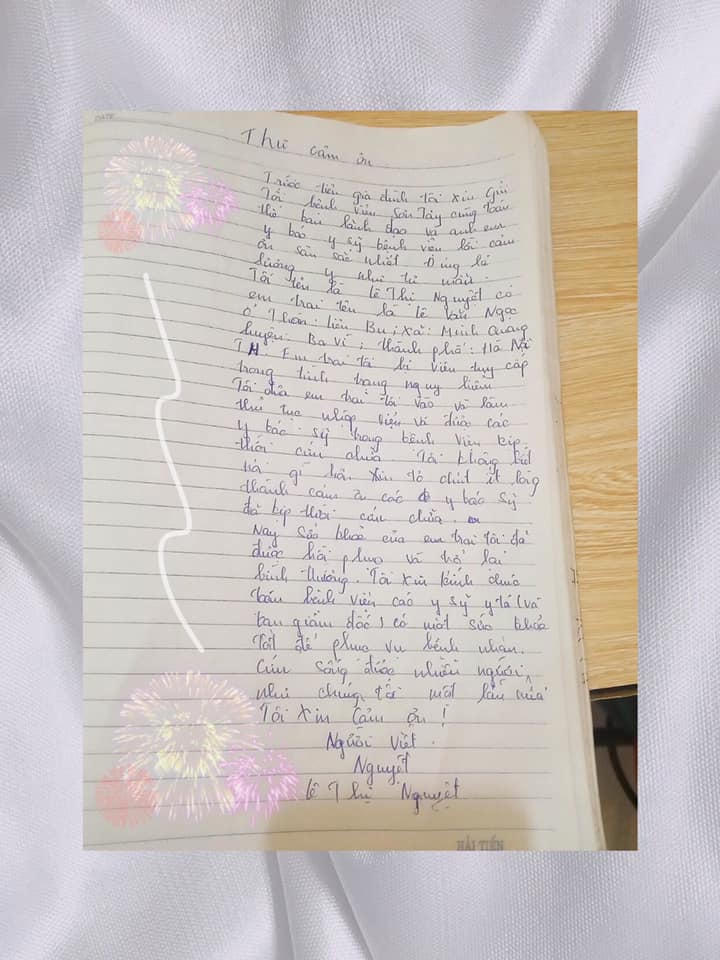 DATE
Thư cảm ơn
Trước tiên gia đình tôi xin gửi
Tới bệnh viện Sơn Tây cùng toàn
thể ban lãnh đạo và anh em
y bác sỹ bệnh viện lời cảm
ơn sâu sắc nhất. Đúng là
lương y như từ mẫu.
Tôi tên là Lê Thị Nguyệt có
em trai tên là Lê Văn Ngọc
ở Thôn: Liên Bu; Xã: Minh Quang
huyện: Ba Vì; thành phố: Hà Nội
TM. Em trai tôi bị viêm tụy cấp
trong tình trạng nguy hiểm
Tôi đưa em trai tôi vào và làm
thủ tục nhập viện và được các
y bác sỹ trong bệnh viện kịp
thời cứu chữa. Tôi không biết
nói gì hơn xin tỏ chút ít lòng
thành cảm ơn các y bác sỹ
đã kịp thời cứu chữa.
Nay sức khoẻ của em trai tôi đã
được hồi phục và trở lại
bình thường. Tôi xin kính chúc
toàn bệnh viện các y sỹ y tá (và
ban giám đốc) có một sức khoẻ
Tốt để phục vụ bệnh nhân.
Cứu sống được nhiều người
như chúng tôi một lần nữa
Tôi xin cảm ơn!
Người Viết.
Nguyệt
Lê Thị Nguyệt
HẢI TIẾN